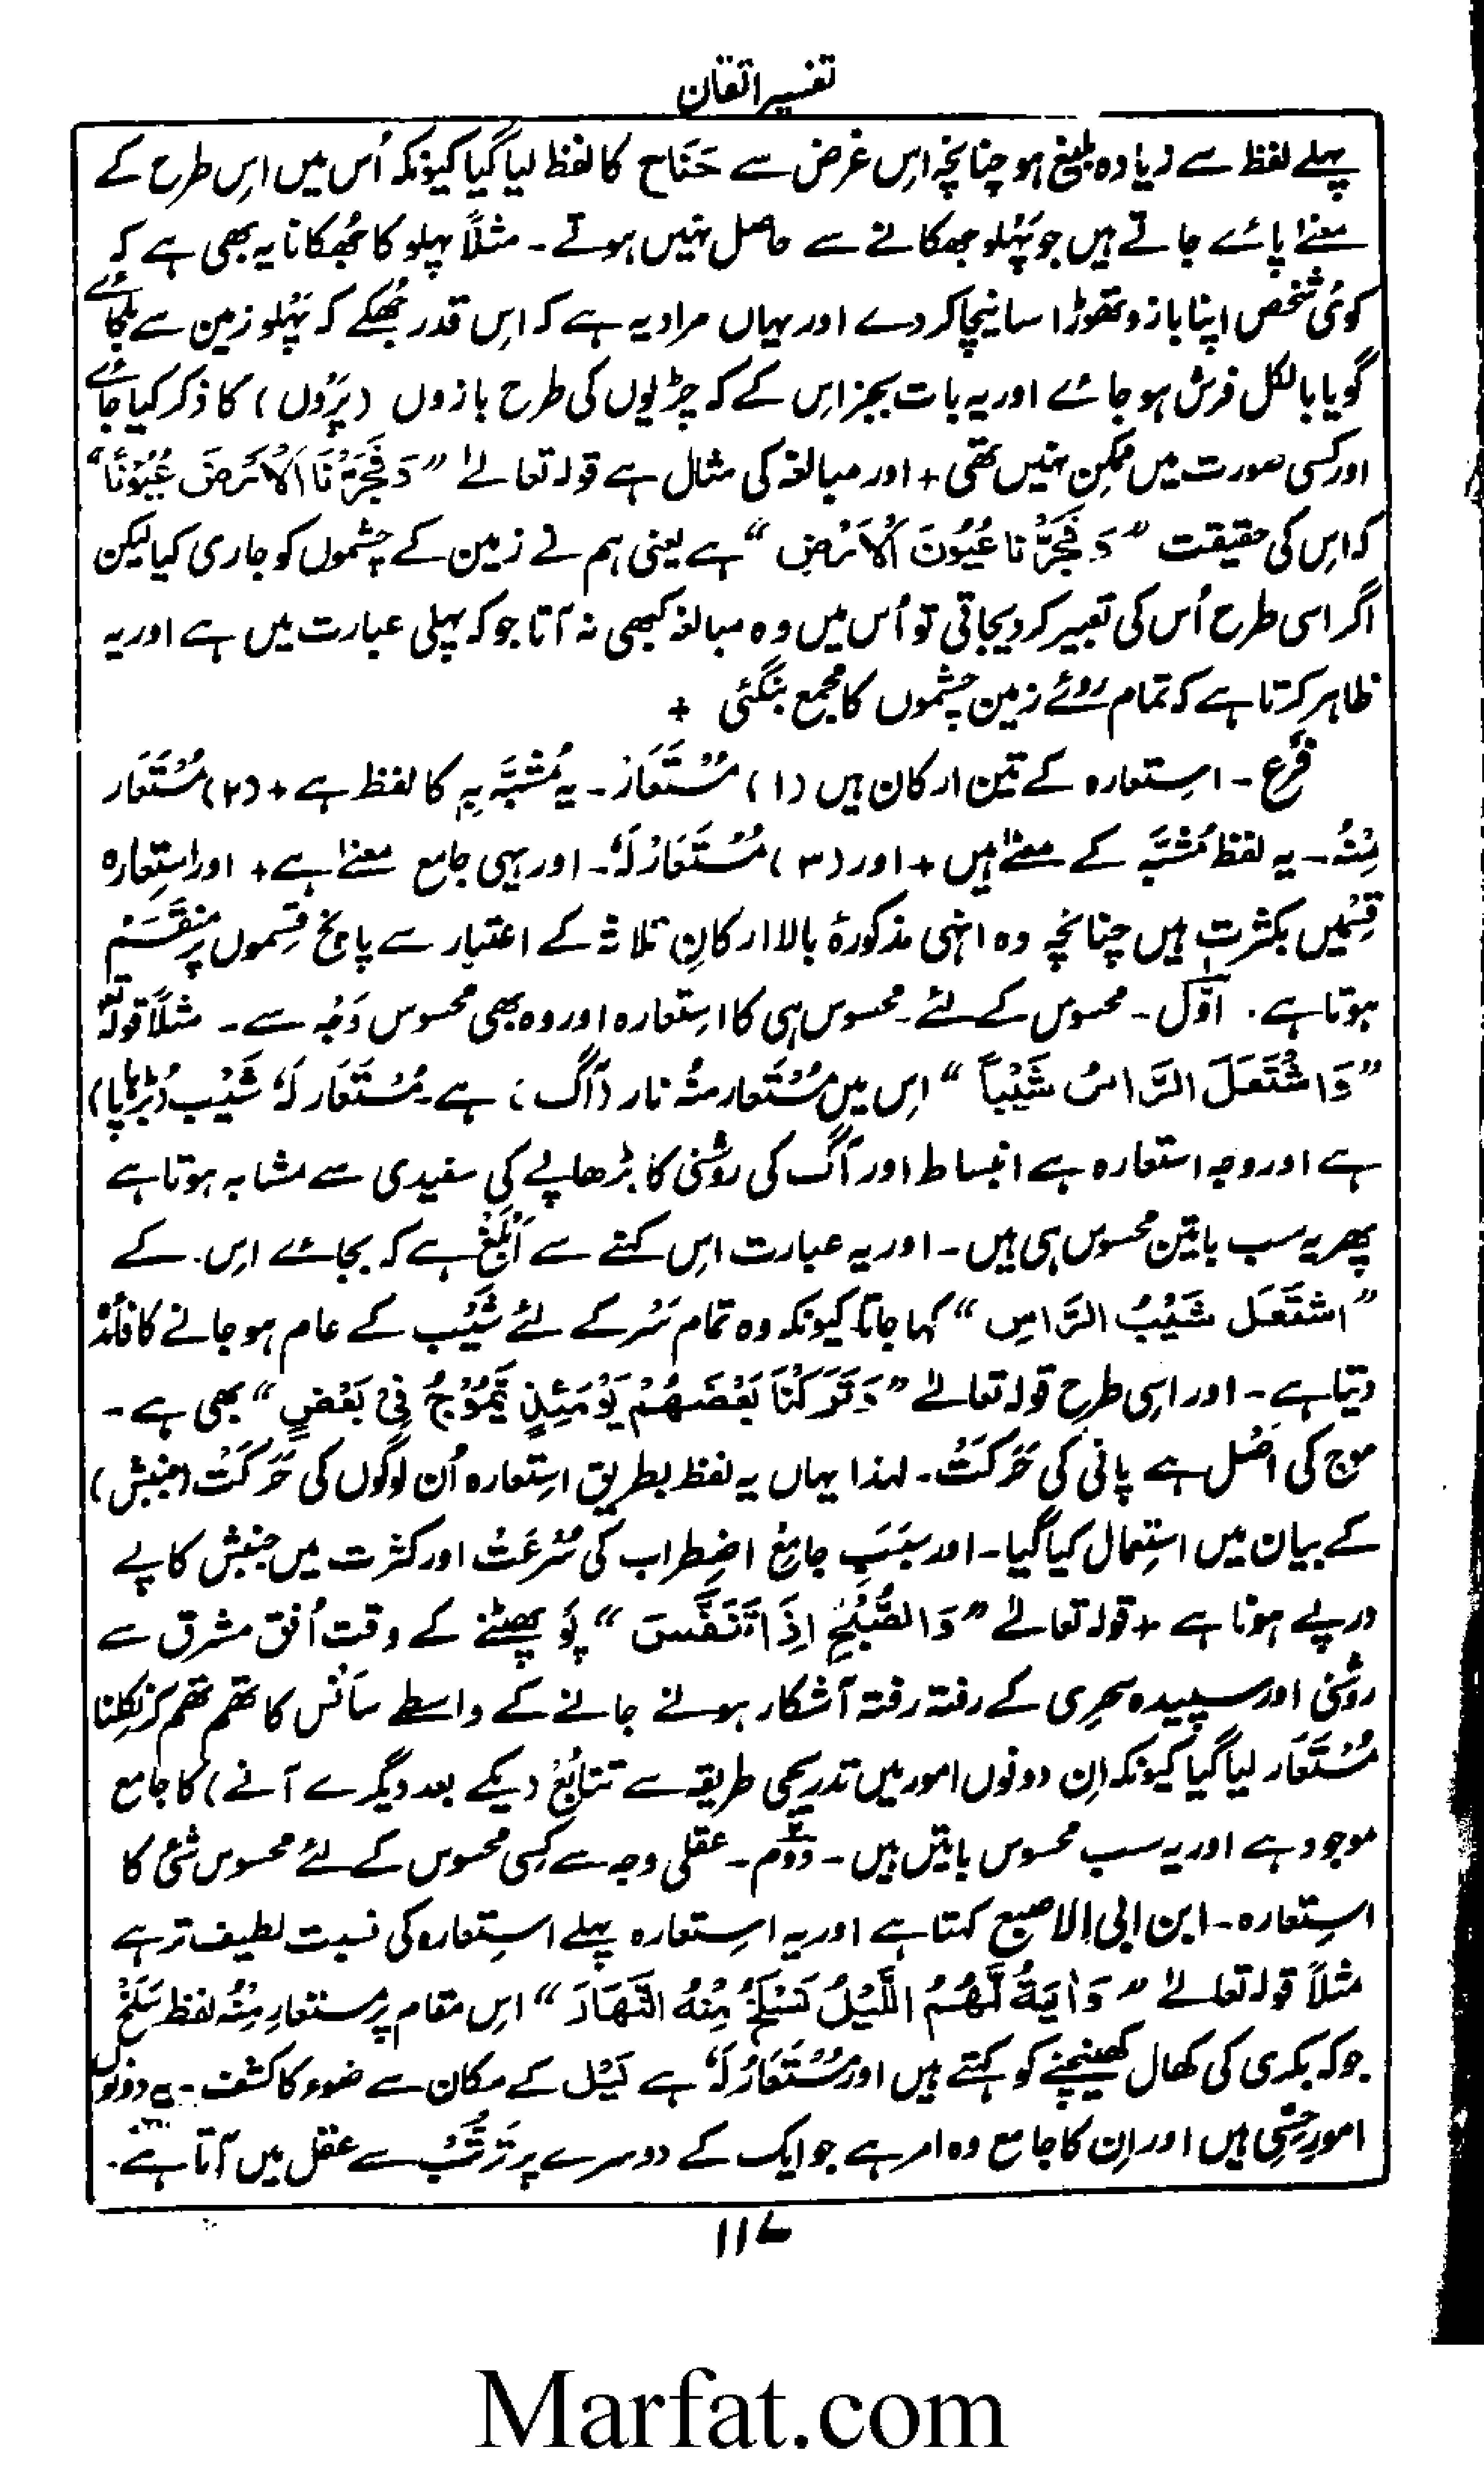 تفسیر اتقان
پہلے لفظ سے زیادہ بلیغ ہو چنانچہ اِس غرض سے جَنَاح کا لفظ لیا گیا کیونکہ اُس میں اِس طرح کے
معنےٰ پائے جاتے ہیں جو پَہْلو جھکانے سے حاصل نہیں ہوتے ۔ مثلاً پہلو کا جُھکانا یہ بھی ہے کہ
کوئی شخص اپنا بازو تھوڑا سا نیچا کر دے اور یہاں مراد یہ ہے کہ اِس قدر جُھکے کہ پَہْلو زمین سے لگجائے
گویا بالکل فرش ہو جائے اور یہ بات بجز اِس کے کہ چڑیوں کی طرح بازوں (پَروں) کا ذکر کیا جائے
اور کسی صورت میں ممکِن نہیں تھی + اور مبالغہ کی مثال ہے قولہ تعالےٰ "وَفَجَّرْنَا الْاَرْضَ عُيُوْنًا"
کہ اِس کی حقیقت "وَفَجَّرْنَا عُيُوْنَ الْاَرْضِ" ہے یعنی ہم نے زمین کے چشموں کو جاری کیا لیکن
اگر اسی طرح اُس کی تعبیر کر دیجاتی تو اُس میں وہ مبالغہ کبھی نہ آتا جو کہ پہلی عبارت میں ہے اور یہ
ظاہر کرتا ہے کہ تمام روئے زمین چشموں کا مجمع بنگئی +
فَرع ۔ اِستعارہ کے تین ارکان ہیں (۱) مُسْتَعَار ۔ یہ مُشَبَّہ بِہٖ کا لفظ ہے + (۲) مُسْتَعَار
مِنْہُ ۔ یہ لفظ مُشَبَّہ کے معنےٰ ہیں + اور (۳) مُسْتَعَارْ لَہٗ ۔ اور یہی جامع معنےٰ ہے + اور اِستِعارہ
قِسْمیں بکثرت ہیں چنانچہ وہ انہی مذکورۂ بالا ارکانِ ثلاثہ کے اعتبار سے پانچ قِسموں پر منقَسَم
ہوتا ہے ۔ اوّل ۔ محسوس کے لئے محسوس ہی کا اِستِعارہ اور وہ بھی محسوس وَجْہ سے ۔ مثلاً قولہٗ تعہ
"وَاشْتَعَلَ الرَّاسُ شَيْباً" اِس میں مُسْتَعار منْہُ نار (آگ) ہے ۔ مُسْتَعَار لَہٗ شَیْب (بُڑہاپا)
ہے اور وجہ استعارہ ہے انبساط اور آگ کی روشنی کا بڑھاپے کی سفیدی سے مشابہ ہوتا ہے
پھر یہ سب باتیں محسوس ہی ہیں ۔ اور یہ عبارت اِس کہنے سے اَبْلَغْ ہے کہ بجائے اِس کے
"اشتَعَلَ شَيْبُ الرَّاسِ" کہا جاتا کیونکہ وہ تمام سَر کے لئے شَیْب کے عام ہو جانے کا فائدہ
دیتا ہے ۔ اور اسی طرح قولہ تعالےٰ "وَتَرَكْنَا بَعْضَهُمْ يَوْمَئِذٍ يَّمُوْجُ فِيْ بَعْضٍ" بھی ہے ۔
موج کی اَصْل ہے پانی کی حَرَکَتْ ۔ لہذا یہاں یہ لفظ بطریق اِستِعارہ اُن لوگوں کی حَرَکَتْ (جنبش)
کے بیان میں استِعمال کیا گیا ۔ اور سبَبِ جامِعْ اضطراب کی سُرعَتْ اور کثرت میں جنبش کا پے
درپے ہونا ہے + قولہ تعالےٰ "وَالصُّبْحِ اِذَا تَنَفَّسَ" پَو پھٹنے کے وقت اُفق مشرق سے
روشنی اور سپیدہ سحری کے رفتہ رفتہ آشکار ہونے جانے کے واسطے سانْس کا تھم تھم کر نِکلنا
مُسْتَعَار لیا گیا کیونکہ اِن دونوں امور میں تدریجی طریقہ سے تتابُعْ (یکے بعد دیگرے آنے) کا جامع
موجود ہے اور یہ سب محسوس باتیں ہیں ۔ دوم ۔ عقلی وجہ سے کِسی محسوس کے لئے محسوس شئی کا
اسِتعارہ ۔ ابن ابی الاصبع کہتا ہے اور یہ اسِتعارہ پہلے استِعارہ کی نسبت لطیف تر ہے
مثلاً قولہ تعالےٰ "وَاٰيَةٌ لَّهُمُ اللَّيْلُ نَسْلَخُ مِنْهُ النَّهَارَ" اِس مقام پر مستعار مِنْہُ لفظ سَلَخْ
جو کہ بکری کی کھال کھینچنے کو کہتے ہیں اور مُسْتَعَارْ لَہٗ ہے لَیْل کے مکان سے ضوء کا کشف ۔ دونوں
امور حِسّی ہیں اور اِن کا جامع وہ امر ہے جو ایک کے دوسرے پر تَرَتُّبْ سے عقل میں آتا ہے ۔
۱۱۷
Marfat.com